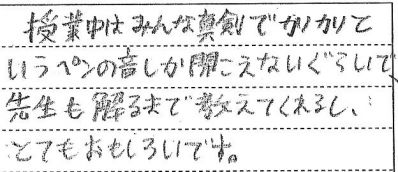 授業中はみんな真剣でカリカリと
いうペンの音しか聞こえないぐらいで、
先生も解るまで教えてくれるし、
とてもおもしろいです。